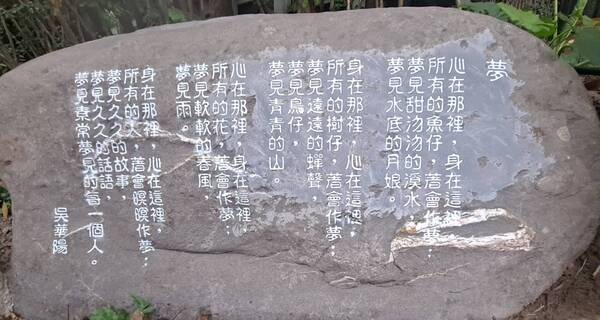 夢
心在那裡，身在這裡
所有的魚仔，著會作夢…
夢見甜汋汋的湶水，
夢見水底的月娘。
身在那裡，心在這裡，
所有的樹仔，著會作夢…
夢見遠遠的蟬聲，
夢見鳥仔，
夢見青青的山。
心在那裡，身在這裡，
所有的花，著會作夢…
夢見軟軟的春風，
夢見雨。
身在那裡，心在這裡，
所有的人，著會暝暝作夢…
夢見久久的故事，
夢見久久的話語，
夢見常夢見的每一個人。
吳華陽